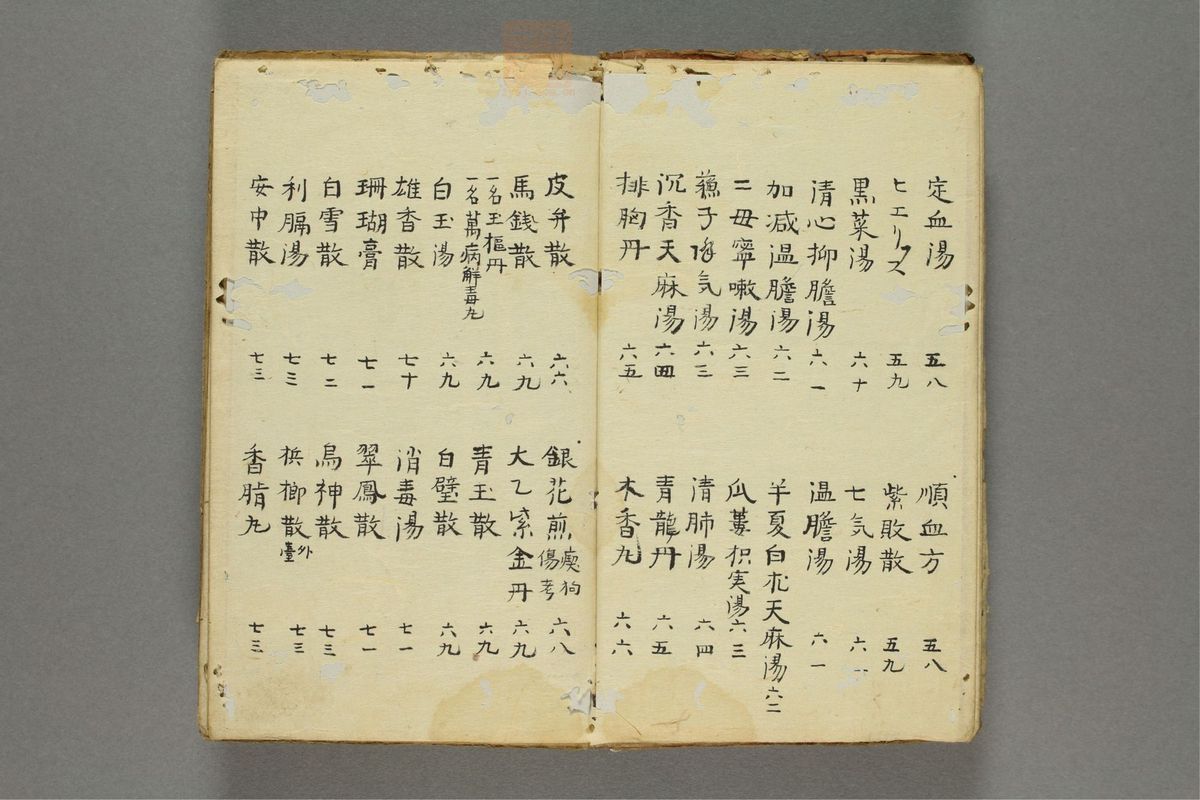 定血湯 五八 順血方 五八
ヒエリ 五九 紫敗散 五九
黒菜湯 六十 七気湯 六一
清心抑膽湯 六一 温膽湯 六一
加減温膽湯 六二 半夏白朮天麻湯 六二
二毋寧嗽湯 六三 瓜蔞枳実湯 六三
蘓子降気湯 六三 清肺湯 六四
沉香天麻湯 六四 青龍丹 六五
排胸丹 六五 木香丸 六六
皮弁散 六六 銀花煎 瘈狗傷考 六八
馬銭散 六九 大乙紫金丹 六九
一名玉樞丹
一名萬病解毒丸 六九 青玉散 六九
白玉湯 六九 白璧散 六九
雄香散 七十 消毒湯 七一
珊瑚膏 七一 翠鳳散 七一
白雪散 七二 烏神散 七三
利膈湯 七三 梹榔散 外臺 七三
安中散 七三 香脂丸 七三